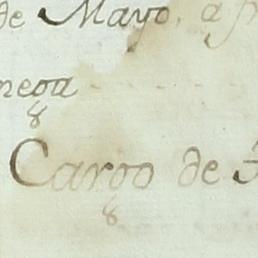 de Mayo, a
nega
Cargo de